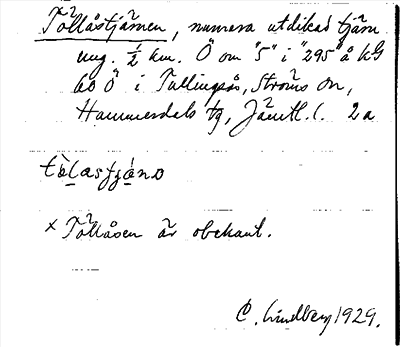 Töllåstjärnen, numera utdikad tjärn
ung. ½ km. Ö om "5" i "295" å kG
60 Ö i Tullingsås, Ströms sn,
Hammerdals tg, Jämtl. l. 2a
tö̀lasʈjä́nɒ
x Töllåsen är obekant.
C. Lindberg 1929.